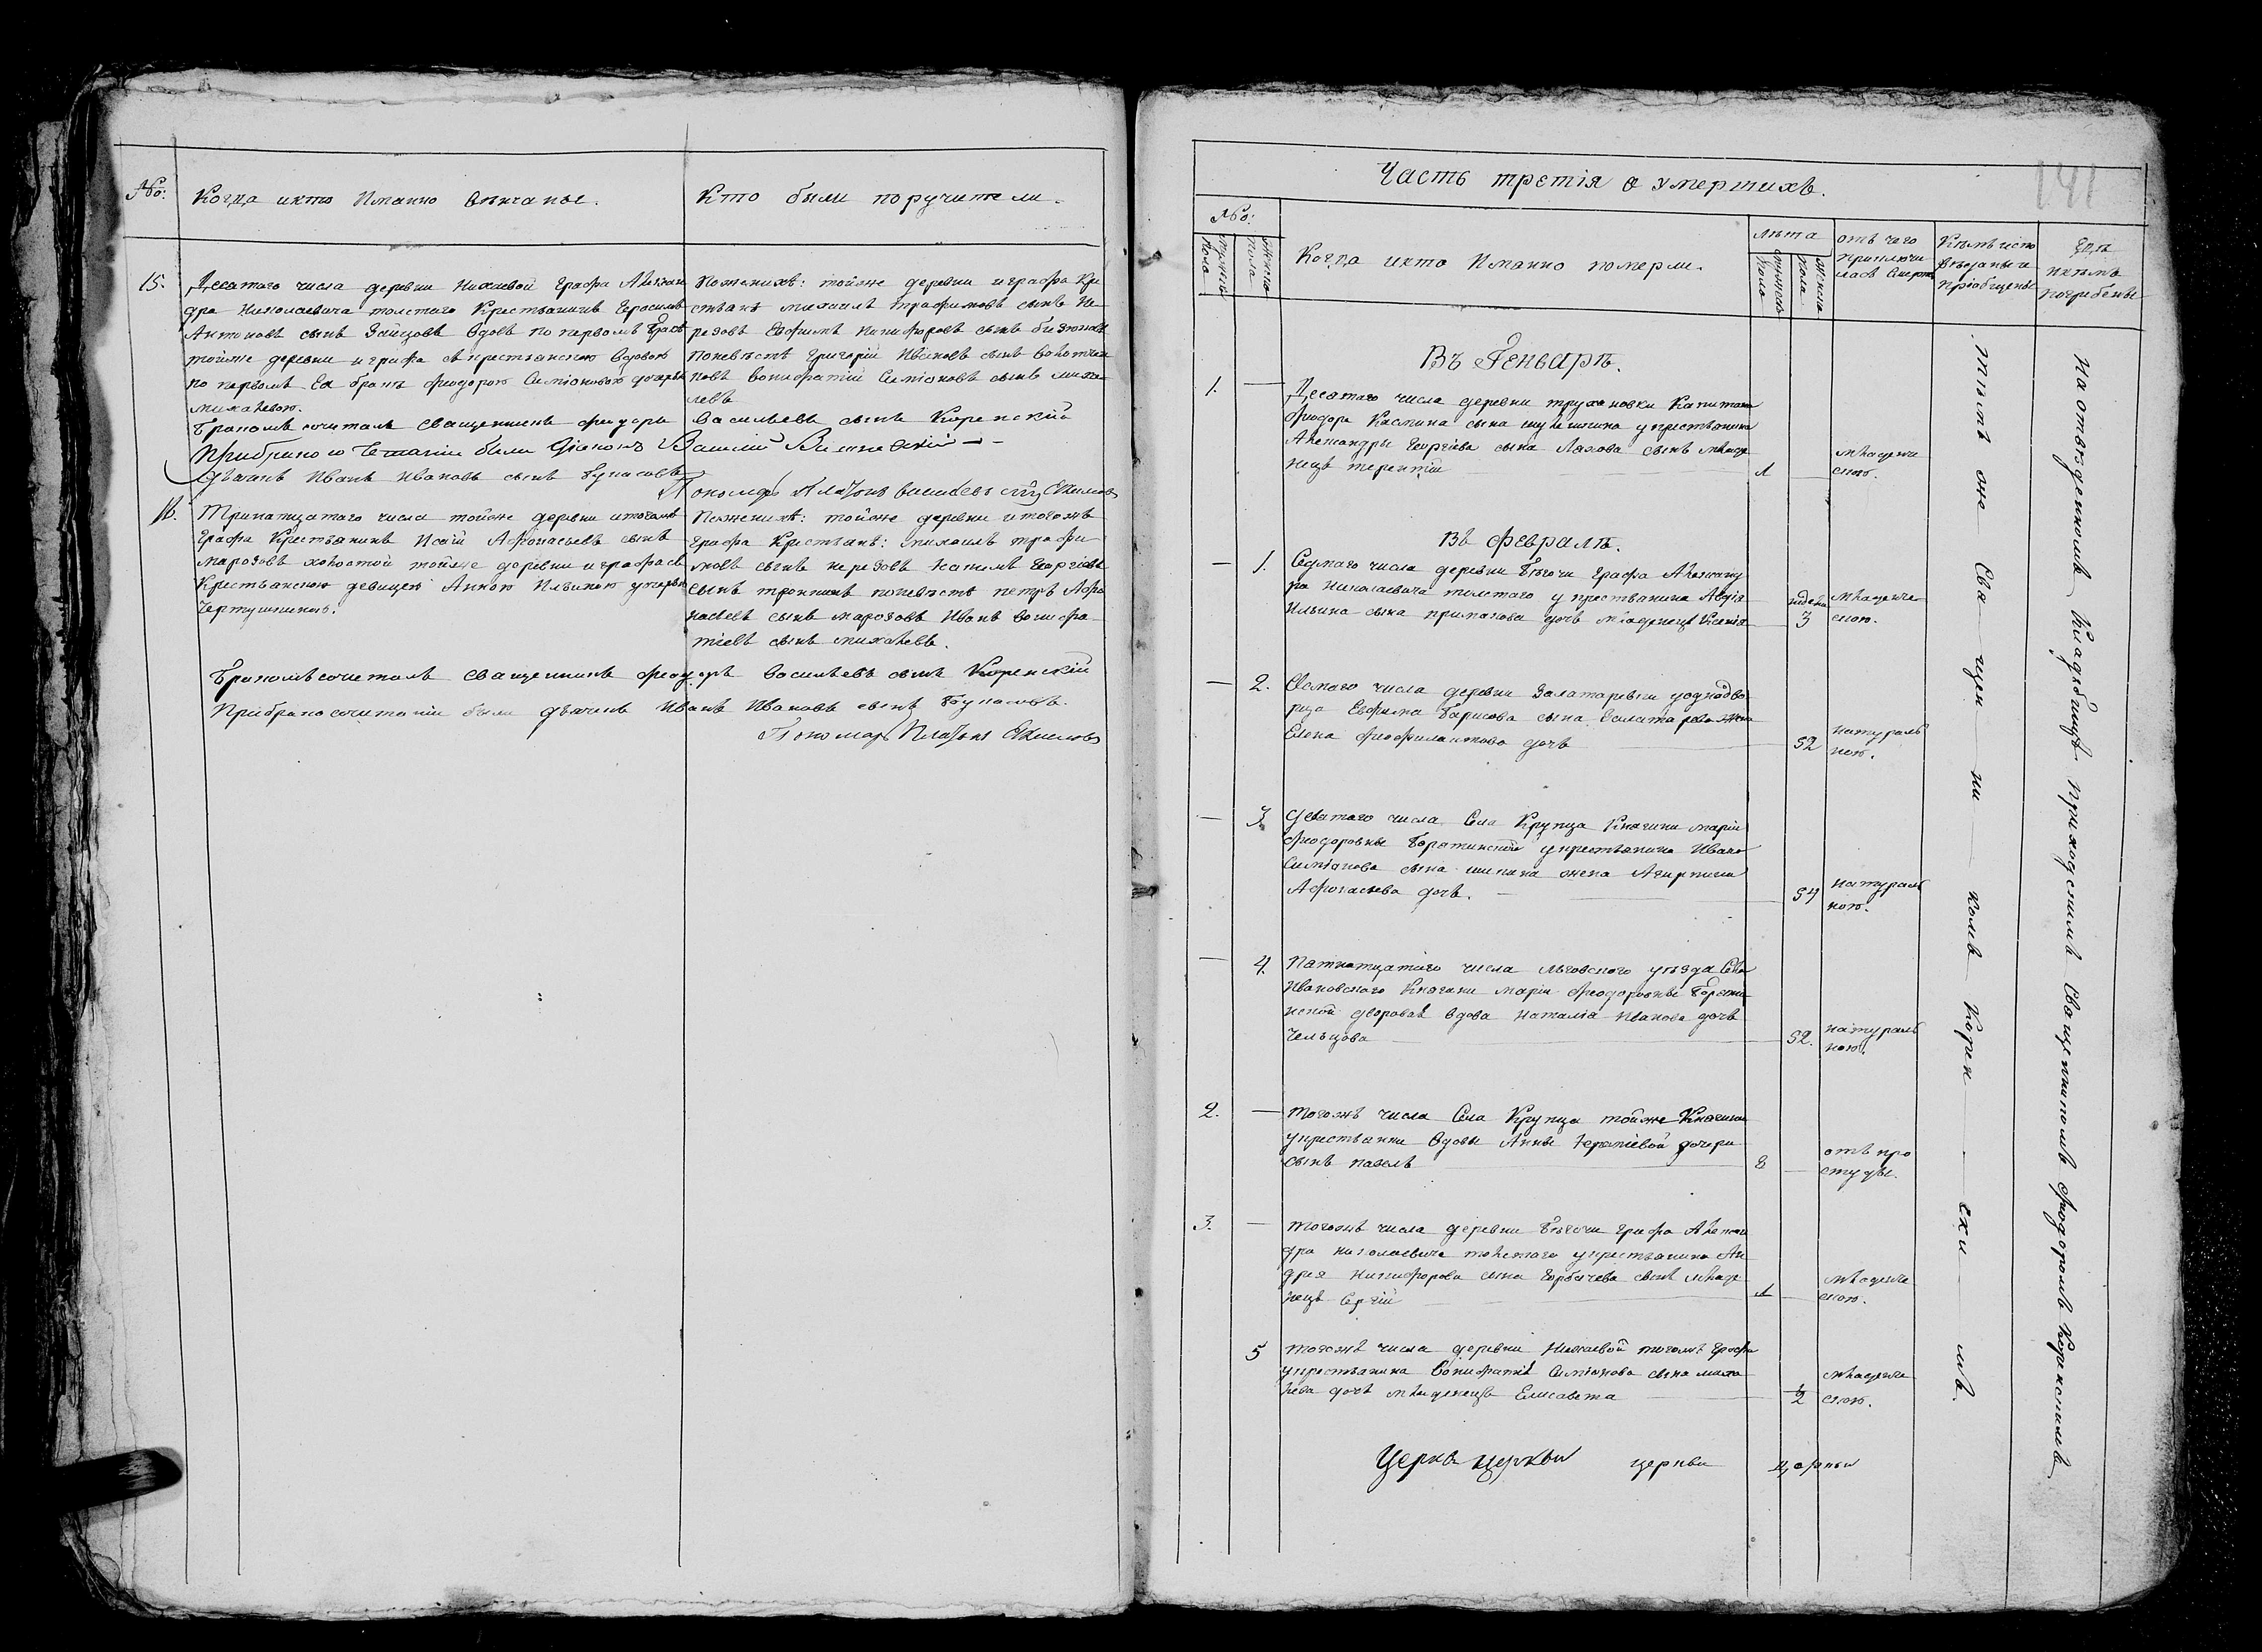 No:
Когда икто Иманно вѣнчаны.
Кто были поручители.
15.
Десатаго числа деревни Нижаевой Графа Алѣѯан
дра Николаевича толстаго Крестьанинъ Герасимъ
Антоновъ сынъ Зайцовъ вдовъ по первомъ бракѣ
тойже деревни играфа съ крестьанскою вдовою
по первомъ Ея бракѣ Феодорою Симіоновою дочерью
михалевою.
Поженихѣ: тойже деревни играфа Кре
стьанѣ михаилъ трафимовъ сынъ Не
резовъ Евфимъ Никифоровъ сынъ
Поневѣстѣ Григорій Ивановъ сынъ
новъ вонифатій Симіоновъ сынъ миха
левъ
Бракомъ сочеталъ священникъ Феодоръ Васильевъ сынъ Коренскій
Прибракосочетаніи были Діаконъ Василій
дьячекъ Иванъ Ивановъ сынъ Букасовъ
Пономарь Платонъ Васильевъ сынъ
16.
Тринатцатаго числа тойже деревни итогожъ
Графа Крестьанинъ Исаій Афонасьевъ сынъ
марозовъ холостой тойже деревни играфа съ
Крестьанскою девицею Анною Ильиною дочерью
Чертушкиною.
Поженихѣ: тойже деревни итогожъ
Графа Крестьанѣ: михаилъ трафи
мовъ сынъ нерезовъ Георгіевъ
сынъ поневѣстѣ петръ Афо
насьевъ сынъ марозовъ Иванъ вонифа
тіевъ сынъ михалевъ.
Бракомъ сочеталъ священникъ Феодоръ Васильевъ сынъ Коренскій
Прибракосочитаніи были дьячекъ Иванъ Ивановъ сынъ Букасовъ.
Пономарь Платонъ
Часть третія о умершихъ.
141
No:
мужеска пола
женска пола
Когда икто Иманно померли.
лѣта
мужеска пола
женска пола
отъ чего приключи лась смерть
Кѣмъ испо вѣданы и пріобщены
Гдѣ икѣмъ погребены
Въ Геньварѣ.
1. —
Десатаго числа деревни трухановки Капитана
Феодора Касмина сына шуклина укрестьанина
Алеѯандры Георгіева сына Ляхова сынъ младе
нецъ терентій
1
младенче
скою.
Въ Февралѣ.
— 1.
Седмаго числа деревни Бѣгочи Графа Алеѯанд
ра Николаевича толстаго укрестьанина Авдія
Ильина сына примакова дочь младенецъ Ксенія
неделъ
3
младенче
скою.
— 2.
Осмаго числа деревни Залатаревки уоднодво
рца Евфима Барисова сына Залатарева жена
Елена Феофилактова дочь
52
натураль
ною.
— 3.
Деватаго числа Села Крупца Княгини маріи
Феодоровны Барятинской укрестьанина Ивана
Симіонова сына шипика жена Агирпина
Афонасьева дочь.
54
натураль
ною.
— 4.
Патнатцатаго числа Льговского уѣзда Села
Ивановского Княгини маріи Феодоровны Борятин
ской дворовая вдова Наталіа Иванова дочь
Чельцова
52.
натураль
ною.
2. —
Тогожъ числа Села Крупца тойже Княгини
укрестьанки вдовы Анны дочери
сынъ павелъ
8
отъ про
студы.
3. —
Тогожъ числа деревни Бѣгочи Графа Алеѯан
дра Николаевича толстаго укрестьанина Ан
дрея Никифорова сына Горбачева сынъ младе
нецъ Сергій
1
младенче
скою.
5
Тогожъ числа деревни Нижаевой тогожъ Графа
укрестьанина Вонифатія Симіонова сына миха
лева дочь младенецъ Елисавета
1/2
младенче
скою.
Тѣмъ же Свя щен ни комъ Корен ски мъ.
На отведенномъ кладбищѣ Приходскимъ Священникомъ Феодоромъ Коренскимъ
Церкв церкви церкви церкви